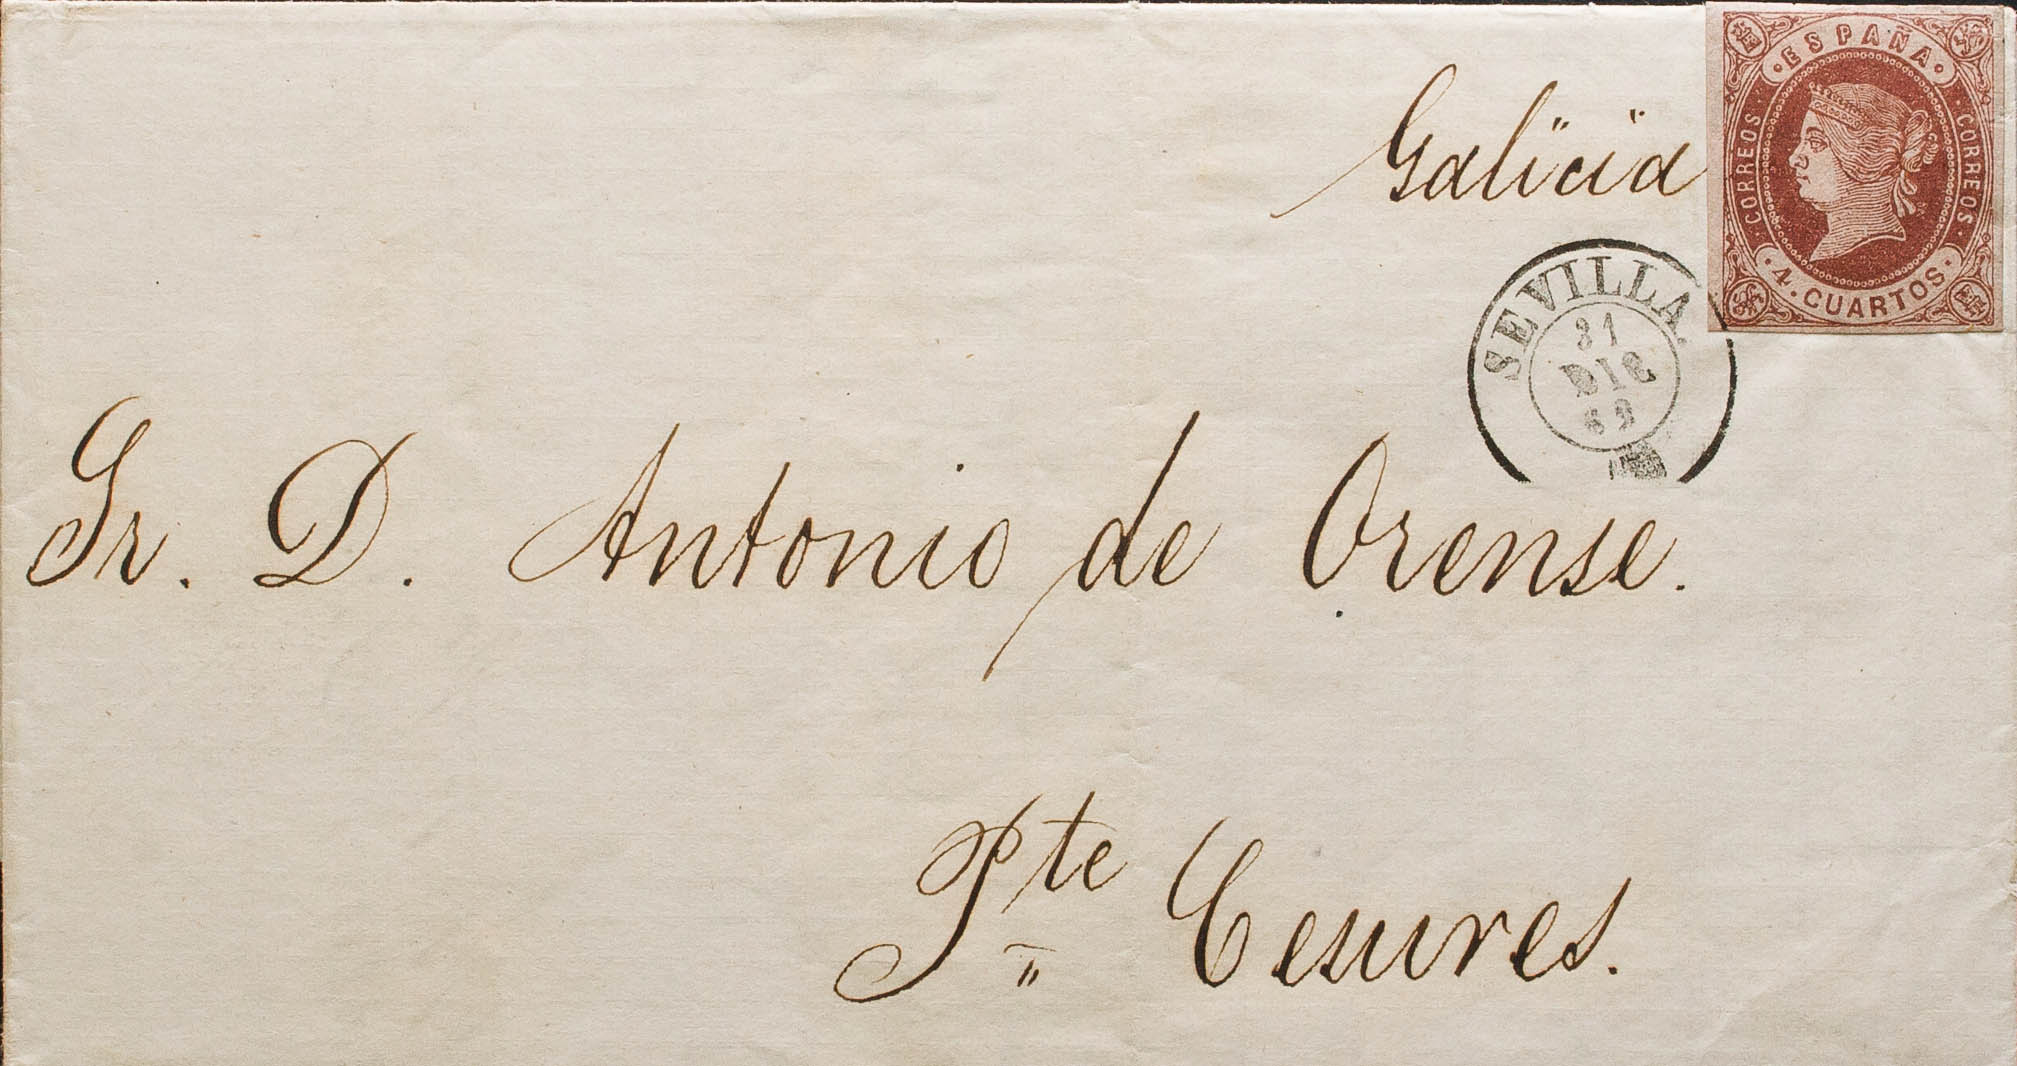 Galicia
ESPAÑA
CORREOS
CORREOS
4. CUARTOS
SEVILLA.
31
DIC
63
Sr. D. Antonio de Orense.
Pte Cesures.